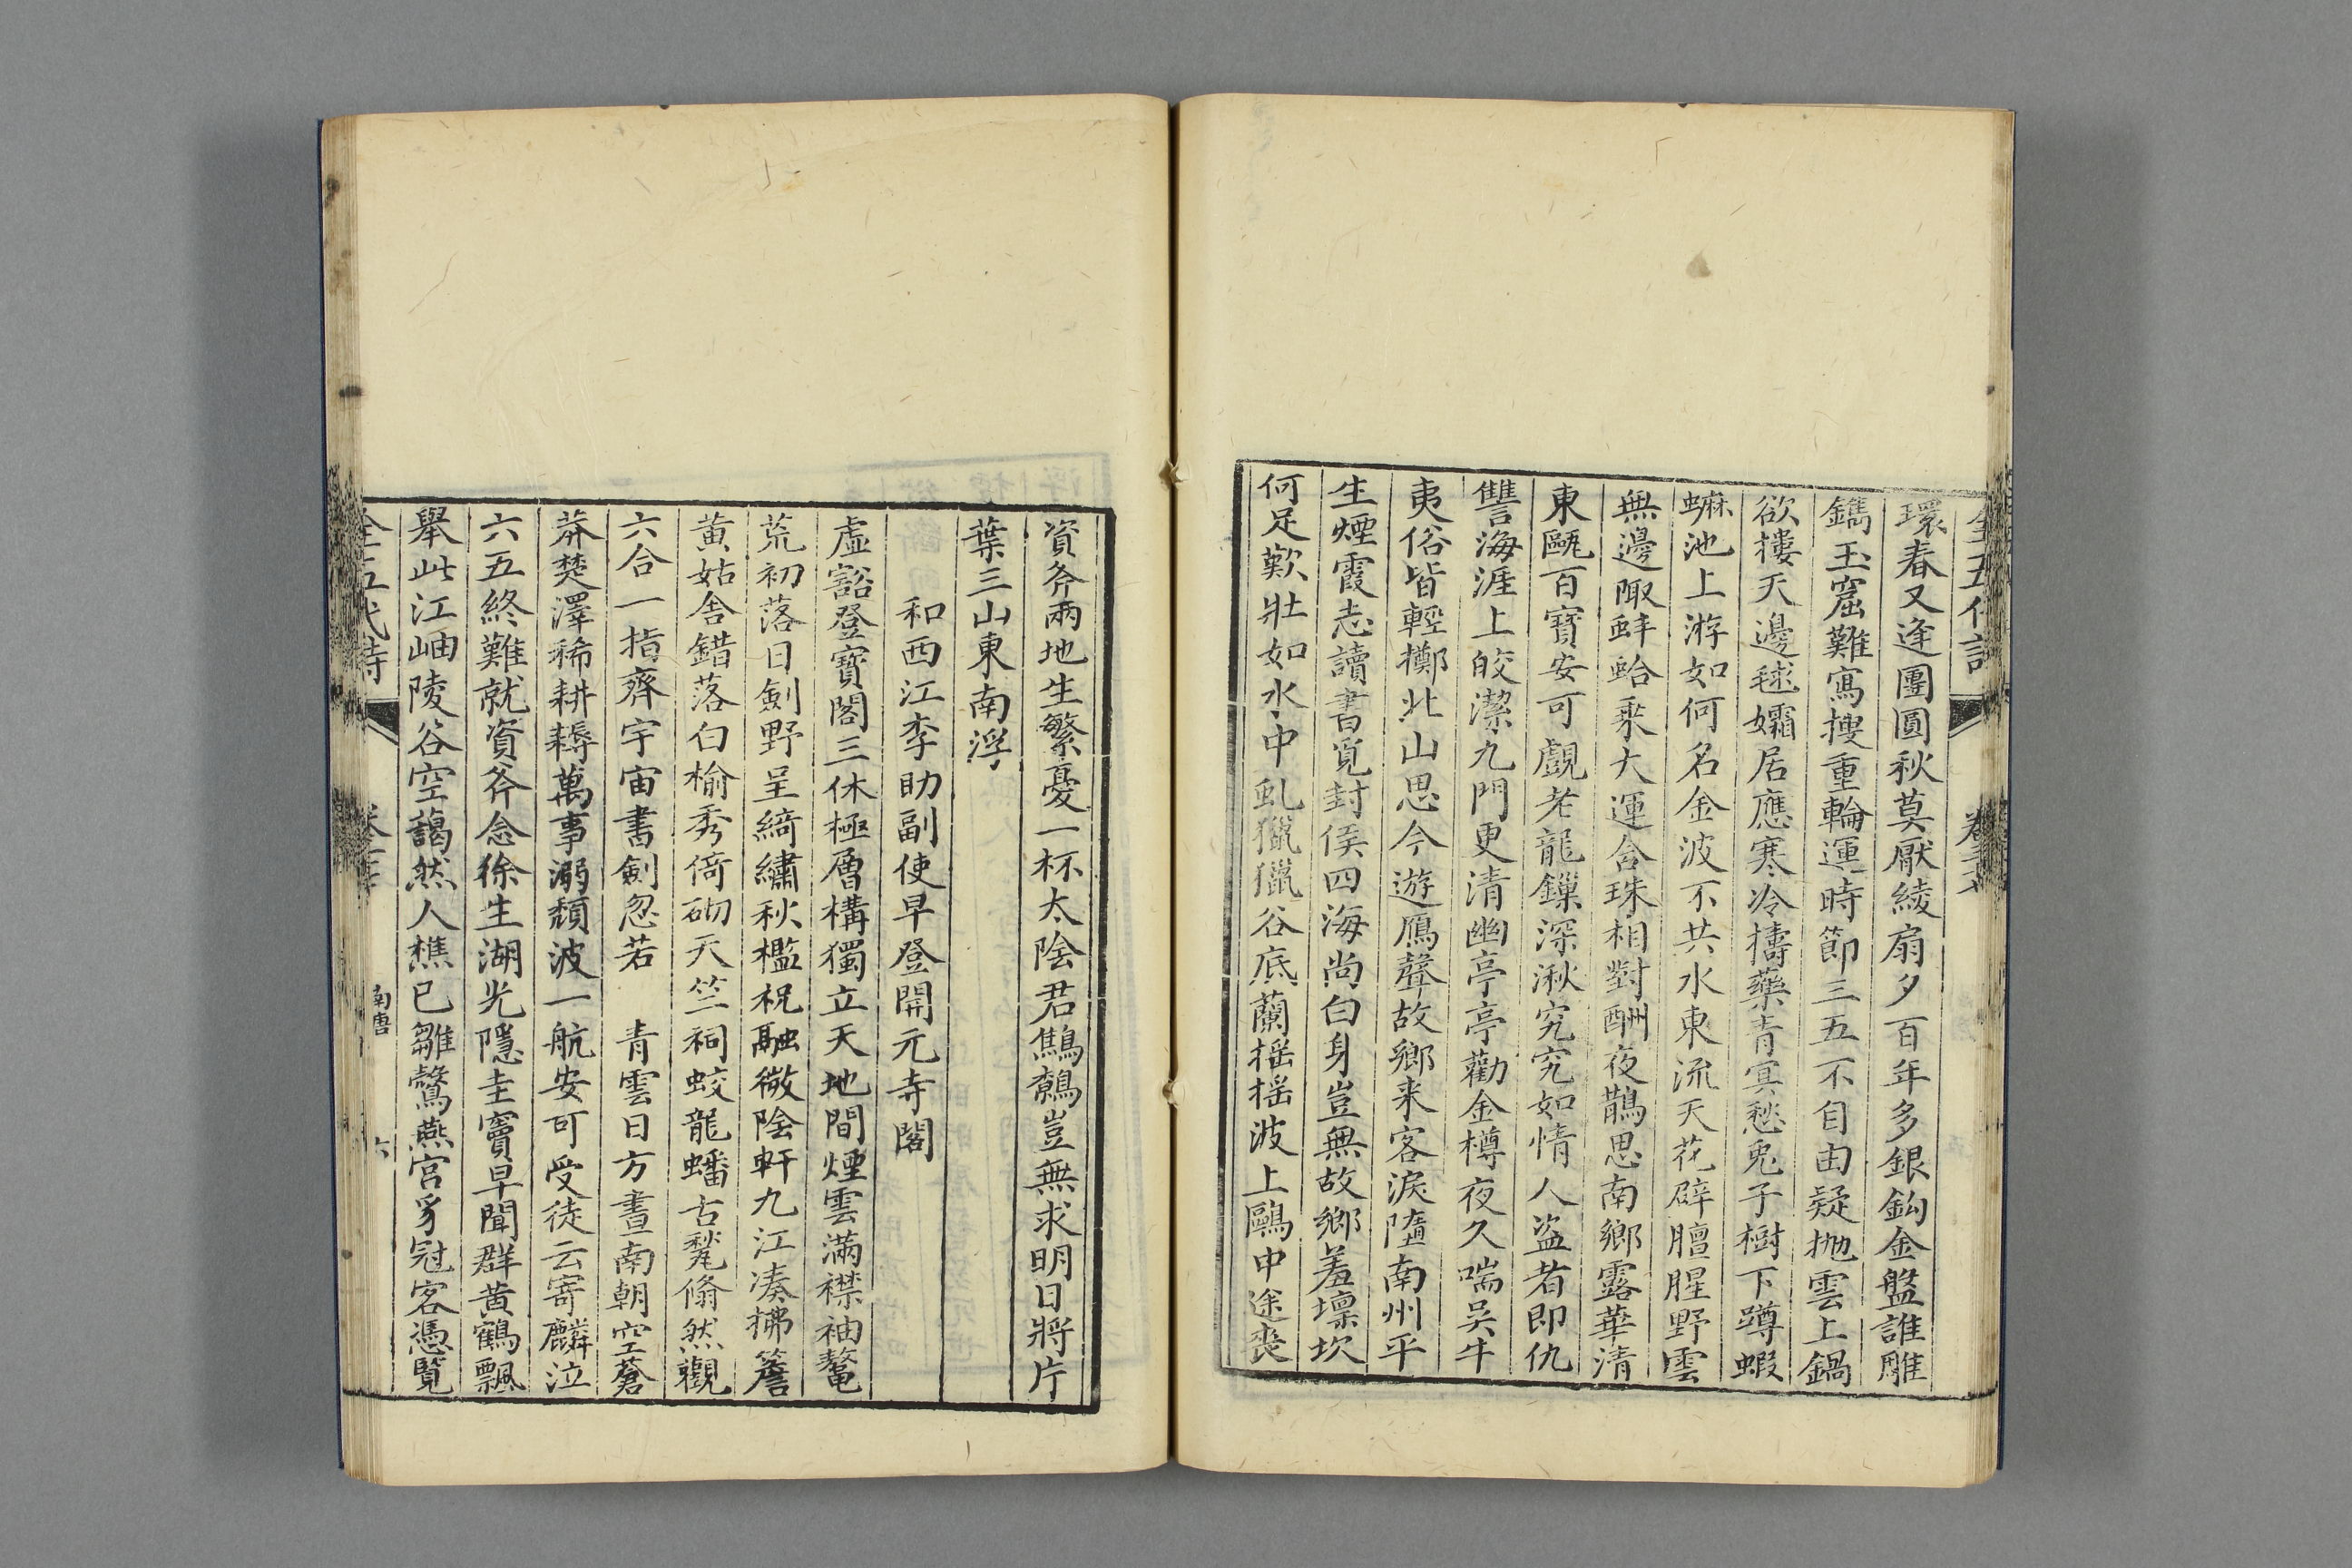 全五代詩
環春又逢團圓秋莫厭綾扇夕百年多銀鈎金盤誰雕
鐫玉窟難寫搜重輪運時節三五不自由疑抛雲上鍋
欲摟天邊毬孀居應寒冷擣藥青冥愁兎子樹下蹲蝦
蟆池上游如何名金波不共水東流天花辟膻腥野雲
無邊陬蚌蛤乘大運含珠相對酬夜鵲思南鄉露華清
東甌百寶安可覰老龍鏁深湫究究如情人盜者即仇
讐海涯上皎潔九門更清幽亭亭勸金樽夜久喘吳牛
夷俗皆輕擲北山思今遊鴈聲故鄉来客淚墮南州平
生煙霞志讀書覓封侯四海尚白身豈無故鄉羞壈坎
何足歎壯如水中虬獵獵谷底蘭揺揺波上鷗中途丧
資斧兩地生繁憂一杯太陰君鷦鷯豈無求明日將片
葉三山東南浮
和西江李助副使早登開元寺閣
虛豁登寶閣三休極層構獨立天地間煙雲滿襟袖鼇
荒初落日劍野呈綺繡秋檻祝融微陰軒九江湊拂簷
黃姑舎錯落白榆秀倚砌天竺祠蛟龍蟠古甃翛然覩
六合一指齊宇宙書劍忽若 青雲日方晝南朝空蒼
莽楚澤稀耕耨萬事溺頹波一航安可受徒云寄麟泣
六五終難就資斧念徐生湖光隱圭竇早聞群黃鶴飄
舉此江岫陵谷空靄然人樵已雛鷖燕宮豸冠客憑覽
全五代詩
南唐
六